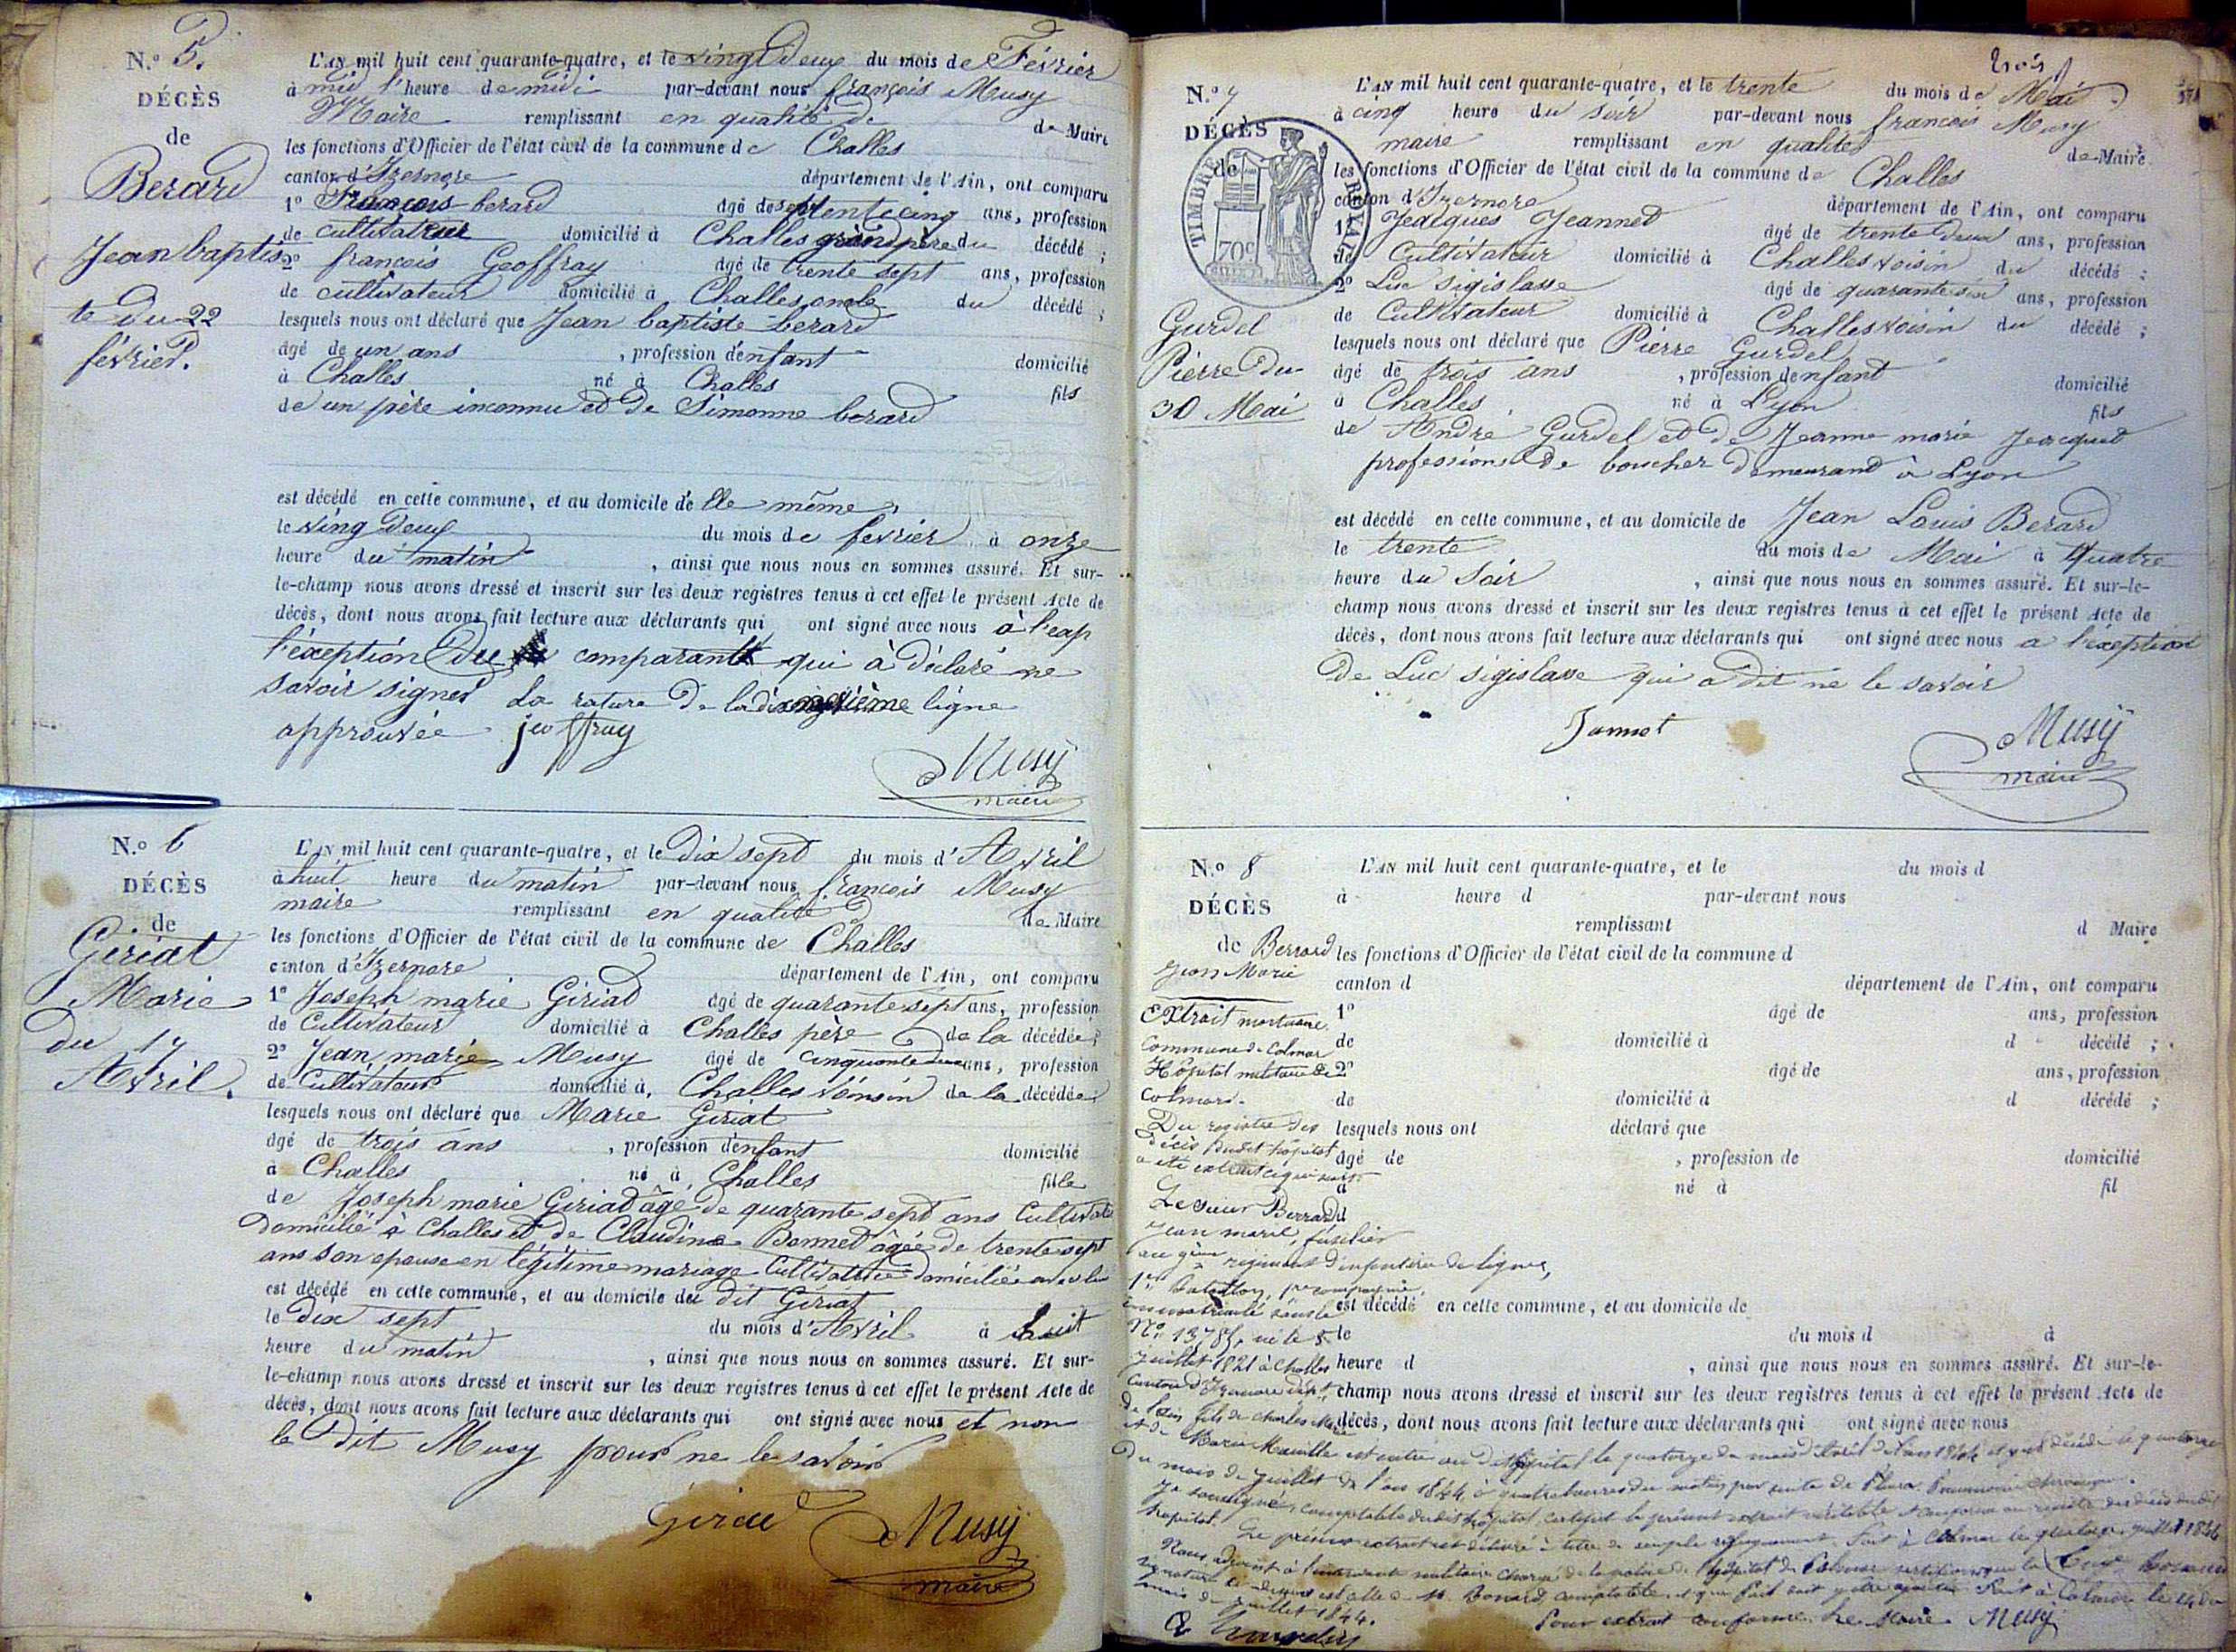 N.° 5.
DÉCÈS
de
Berard
Jean baptis
te du 22
février.
L'AN mil huit cent quarante-quatre, et le vingt Deux du mois de Février
à midi l'heure de midi par-devant nous françois Musy
Maire remplissant en qualité de de Maire
les fonctions d'Officier de l'état civil de la commune de Challes
canton d'Izernore département de l'Ain, ont comparu
1° François berard âgé de septente cinq ans, profession
de cultivateur domicilié à Challes grand père du décédé ;
2° françois Geoffray âgé de trente sept ans, profession
de cultivateur domicilié à Challes oncle du décédé ;
lesquels nous ont déclaré que Jean baptiste berard
âgé de un ans , profession d'enfant domicilié
à Challes né à Challes fils
de un père inconnu et de Simonne berard
est décédé en cette commune, et au domicile d'elle même,
le ving Deux du mois de février à onze
heure du matin , ainsi que nous nous en sommes assuré. Et sur-
le-champ nous avons dressé et inscrit sur les deux registres tenus à cet effet le présent Acte de
décès, dont nous avons fait lecture aux déclarants qui ont signé avec nous à l'exep
l'éxeption Du comparant qui à déclaré ne
savoir signer La rature De la ligne
approuvée jeoffray
Musy
maire
N.° 6
DÉCÈS
de
Giriat
Marie
du 17
Avril.
L'AN mil huit cent quarante-quatre, et le Dix sept du mois d'Avril
à huit heure du matin par-devant nous françois Musy
maire remplissant en qualité de Maire
les fonctions d'Officier de l'état civil de la commune de Challes
canton d'Izernore département de l'Ain, ont comparu
1° Joseph marie Giriad âgé de quarante sept ans, profession
de Cultivateur domicilié à Challes père de la décédée ;
2° Jean marie Musy âgé de cinquante deux ans, profession
de Cultivateur domicilié à Challes voinsin de la décédée
lesquels nous ont déclaré que Marie Giriat
âgé de trois ans , profession d'enfant domicilié
à Challes né à Challes fille
de Joseph marie Giriad âgé de quarante sept ans Cultivate
Domicilié à Challes et de Claudine Bonned âgée de trente sept
ans son epouse en légitime mariage Cultivatrice domiciliée avec lui
est décédé en cette commune, et au domicile du dit Giriat
le Dix sept du mois d'Avril à huit
heure du matin , ainsi que nous nous en sommes assuré. Et sur-
le-champ nous avons dressé et inscrit sur les deux registres tenus à cet effet le présent Acte de
décès, dont nous avons fait lecture aux déclarants qui ont signé avec nous et non
le Dit Musy pour ne le savoir
Musy
maire
trois
N.° 7
DÉCÈS
de
TIMBRE ROYAL
70c
Gurdel
Pierre Du
30 Mai
L'AN mil huit cent quarante-quatre, et le trente du mois de Mai
à cinq heure du soir par-devant nous francois Musy
maire remplissant en qualités de Maire
les fonctions d'Officier de l'état civil de la commune de Challes
canton d'Izernore département de l'Ain, ont comparu
1° Jeacques Jeannet âgé de trente Deux ans, profession
de Cultivateur domicilié à Challes voisin du décédé ;
2° Luc sigislasse âgé de quarante six ans, profession
de Cultivateur domicilié à Challes voisin du décédé ;
lesquels nous ont déclaré que Pierre Gurdel
âgé de trois ans , profession d'enfant domicilié
à Challes né à Lyon fils
de André Gurdel et de Jeanne marie Jeacqued
professions de boucher Demeurand à Lyon
est décédé en cette commune, et au domicile de Jean Louis Berard
le trente du mois de Mai à quatre
heure du Soir , ainsi que nous nous en sommes assuré. Et sur-le-
champ nous avons dressé et inscrit sur les deux registres tenus à cet effet le présent Acte de
décès, dont nous avons fait lecture aux déclarants qui ont signé avec nous a l'exeption
De Luc sigislasse qui a dit ne le savoir
Jannet
Musy
maire
N.° 8
DÉCÈS
de Berrard
Jean Marie
Extrait mortuaire.
Commune de Colmar
Hôpital militaire de
Colmar.
Du registre des
décès dudit hôpital
a été extrait ce qui suit:
Le sieur Berrard
Jean marie, fusilier
au régiment d'infanterie de ligne,
1er Bataillon, 1re compagnie,
immatriculé sous le
N° 13785, né le 5
juillet 1821 à Challes
Canton d'Izernore dépt
de l'Ain fils de Charles Marie
L'AN mil huit cent quarante-quatre, et le du mois d
à heure d par-devant nous
remplissant d Maire
les fonctions d'Officier de l'état civil de la commune d
canton d département de l'Ain, ont comparu
1° âgé de ans, profession
de domicilié à d décédé ;
2° âgé de ans, profession
de domicilié à d décédé ;
lesquels nous ont déclaré que
âgé de , profession de domicilié
à né à fil
d
est décédé en cette commune, et au domicile de
le du mois d à
heure d , ainsi que nous nous en sommes assuré. Et sur-le-
champ nous avons dressé et inscrit sur les deux registres tenus à cet effet le présent Acte de
décès, dont nous avons fait lecture aux déclarants qui ont signé avec nous
et de Marie est entré au dit hôpital le quatorze du mois d'avril de l'an 1844 et y est décédé le quatorze
Du mois de juillet de l'an 1844, à quatre heures du matin, par suite de chronique.
Je soussigné, comptable dudit hôpital, certifie le présent extrait véritable et conforme au registre des décès dudit
hopital. Le présent extrait est délivré à titre de simple renseignement. Fait à Colmar le quatorze juillet 1844
Nous, adjoint à l'intendant militaire chargé de la police de l'hôpital de Colmar certifions que la
signature ci-dessus est celle de M. Bonard, comptable, et que foi doit y être ajoutée. Fait à Colmar le 14 du
mois de juillet 1844.
Pour extrait conforme. Le Maire Musy